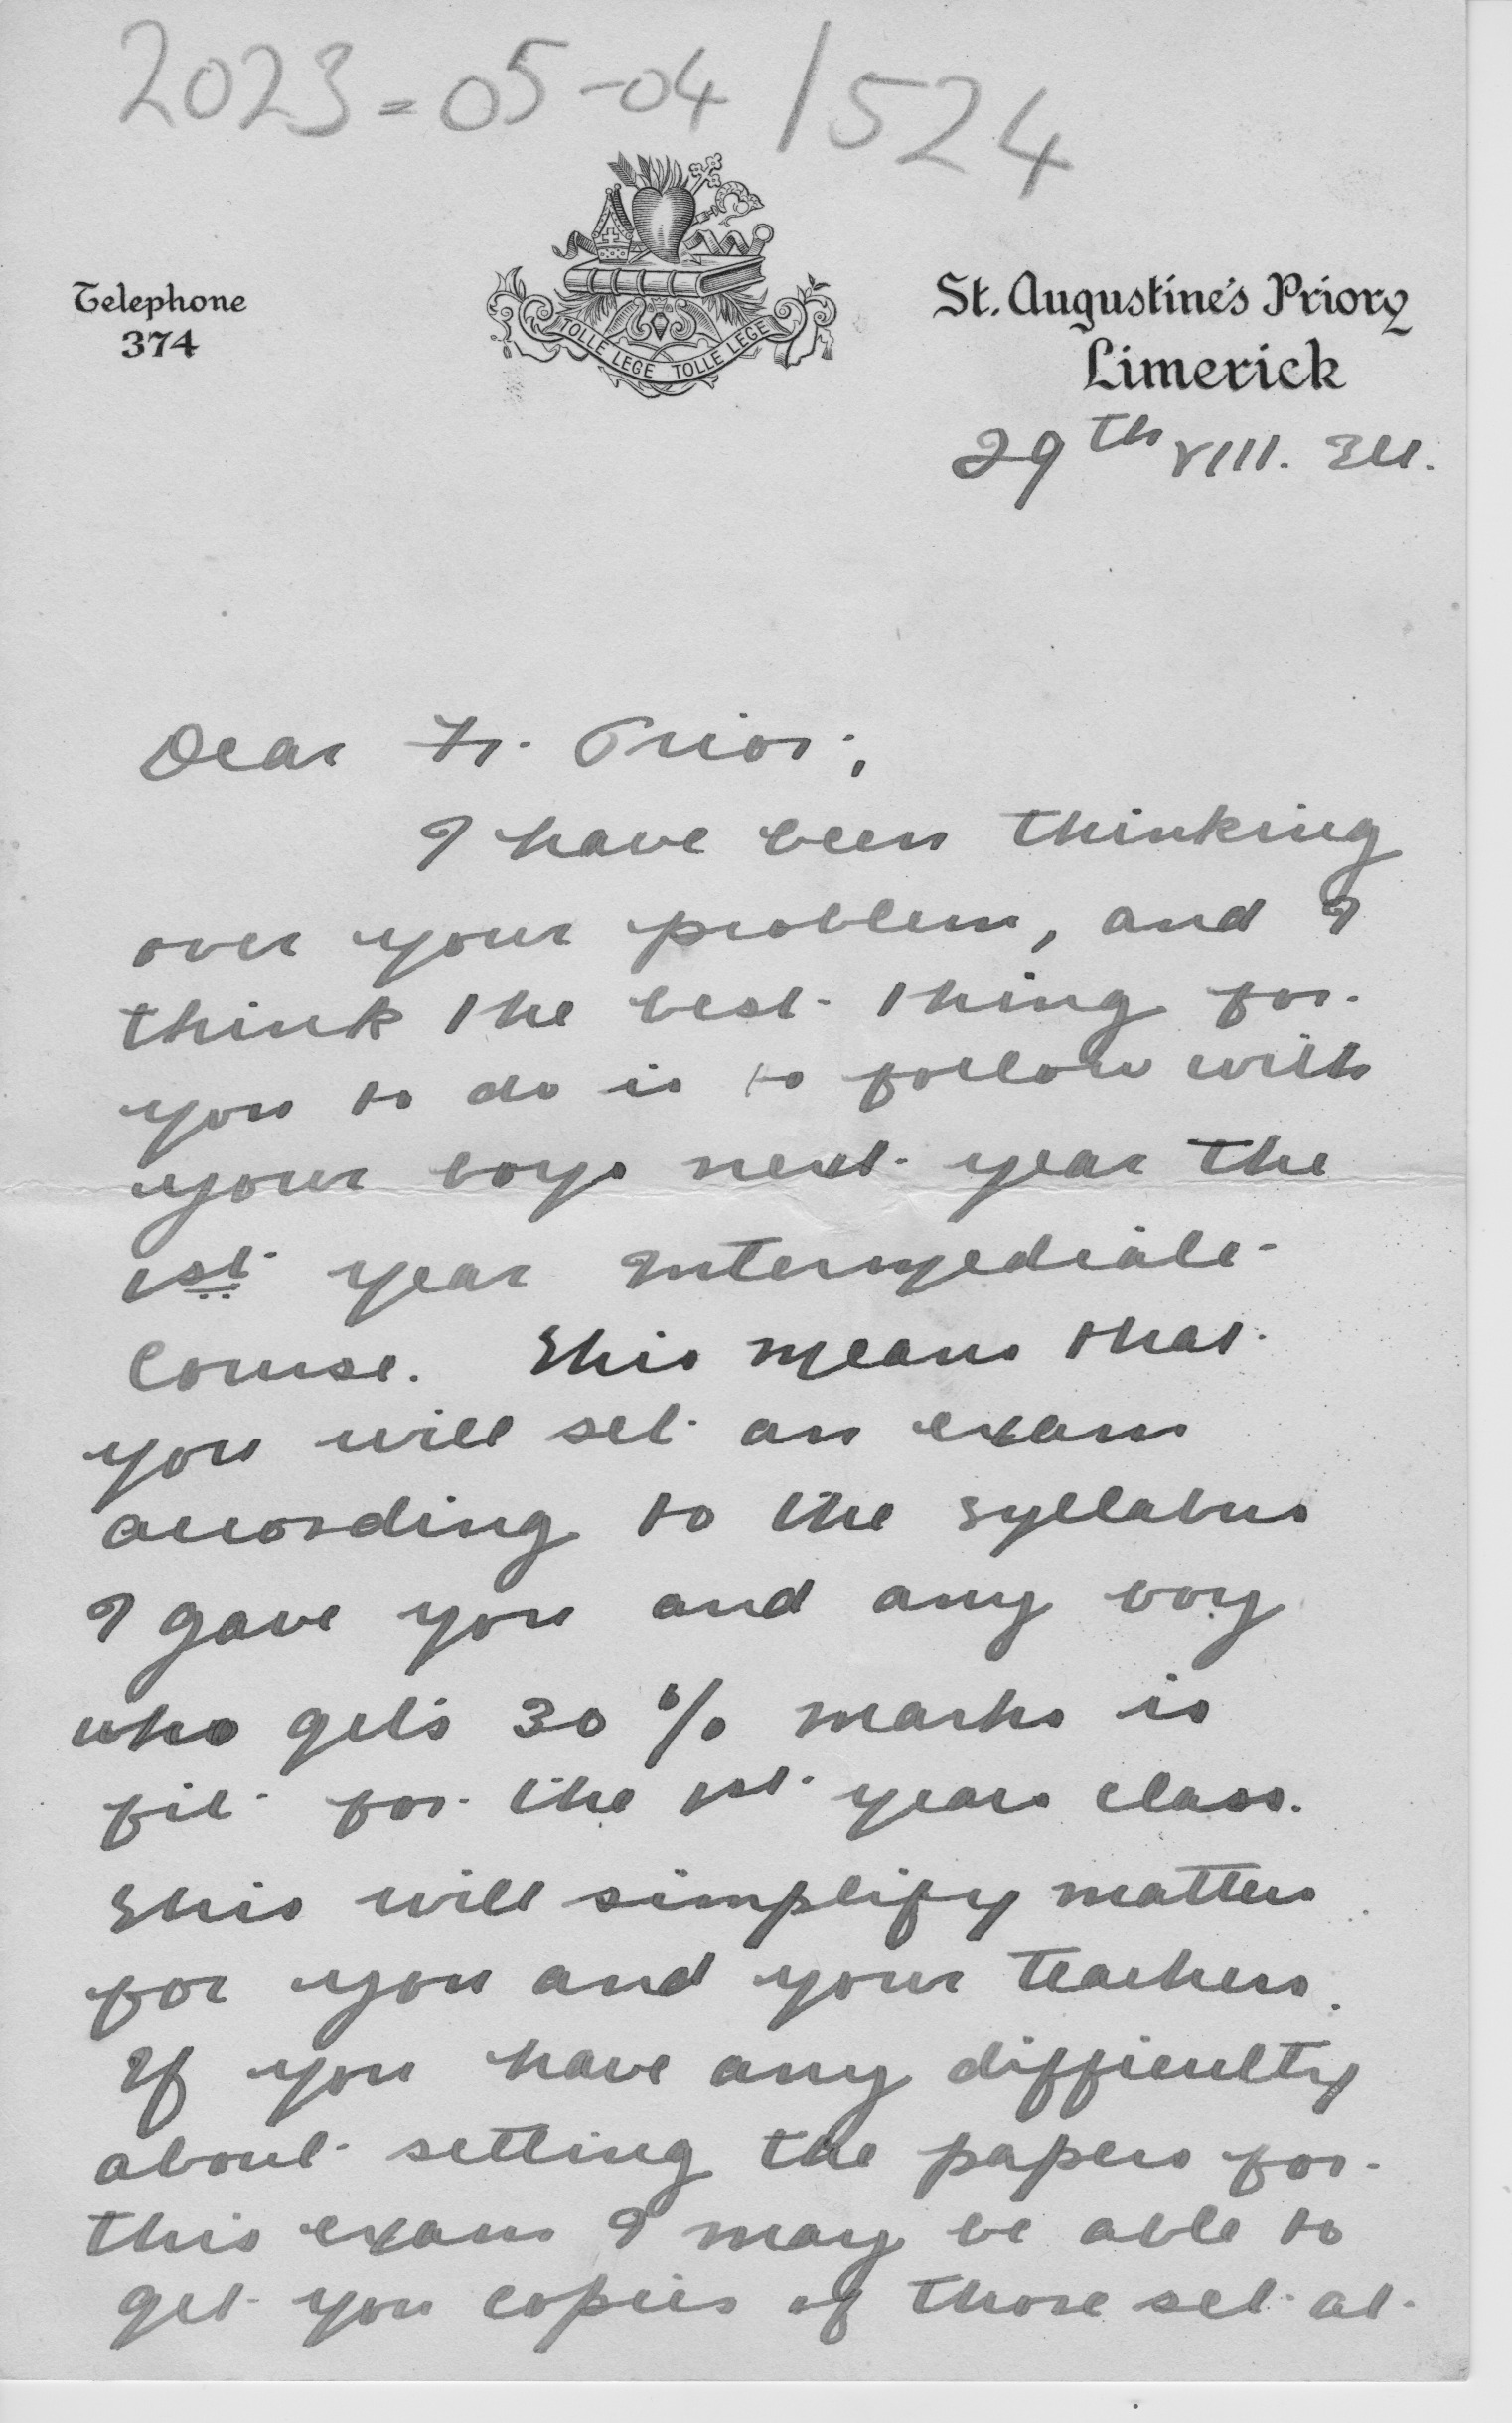 2023-05-04/524
Telephone
374
TOLLE LEGE TOLLE LEGE
St. Augustine's Priory
Limerick
29th VIII.
Dear Fr. Prior;
I have been thinking
over your problem, and I
think the best thing for
you to do is to follow with
your boys next year the
1st year Intermediate
Course. This means that
you will set an exam
according to the syllabus
I gave you and any boy
who gets 30% marks is
fit for the 1st years class.
This will simplify matters
for you and your teachers.
If you have any difficulty
about setting the papers for
this exam I may be able to
get you copies of those set at